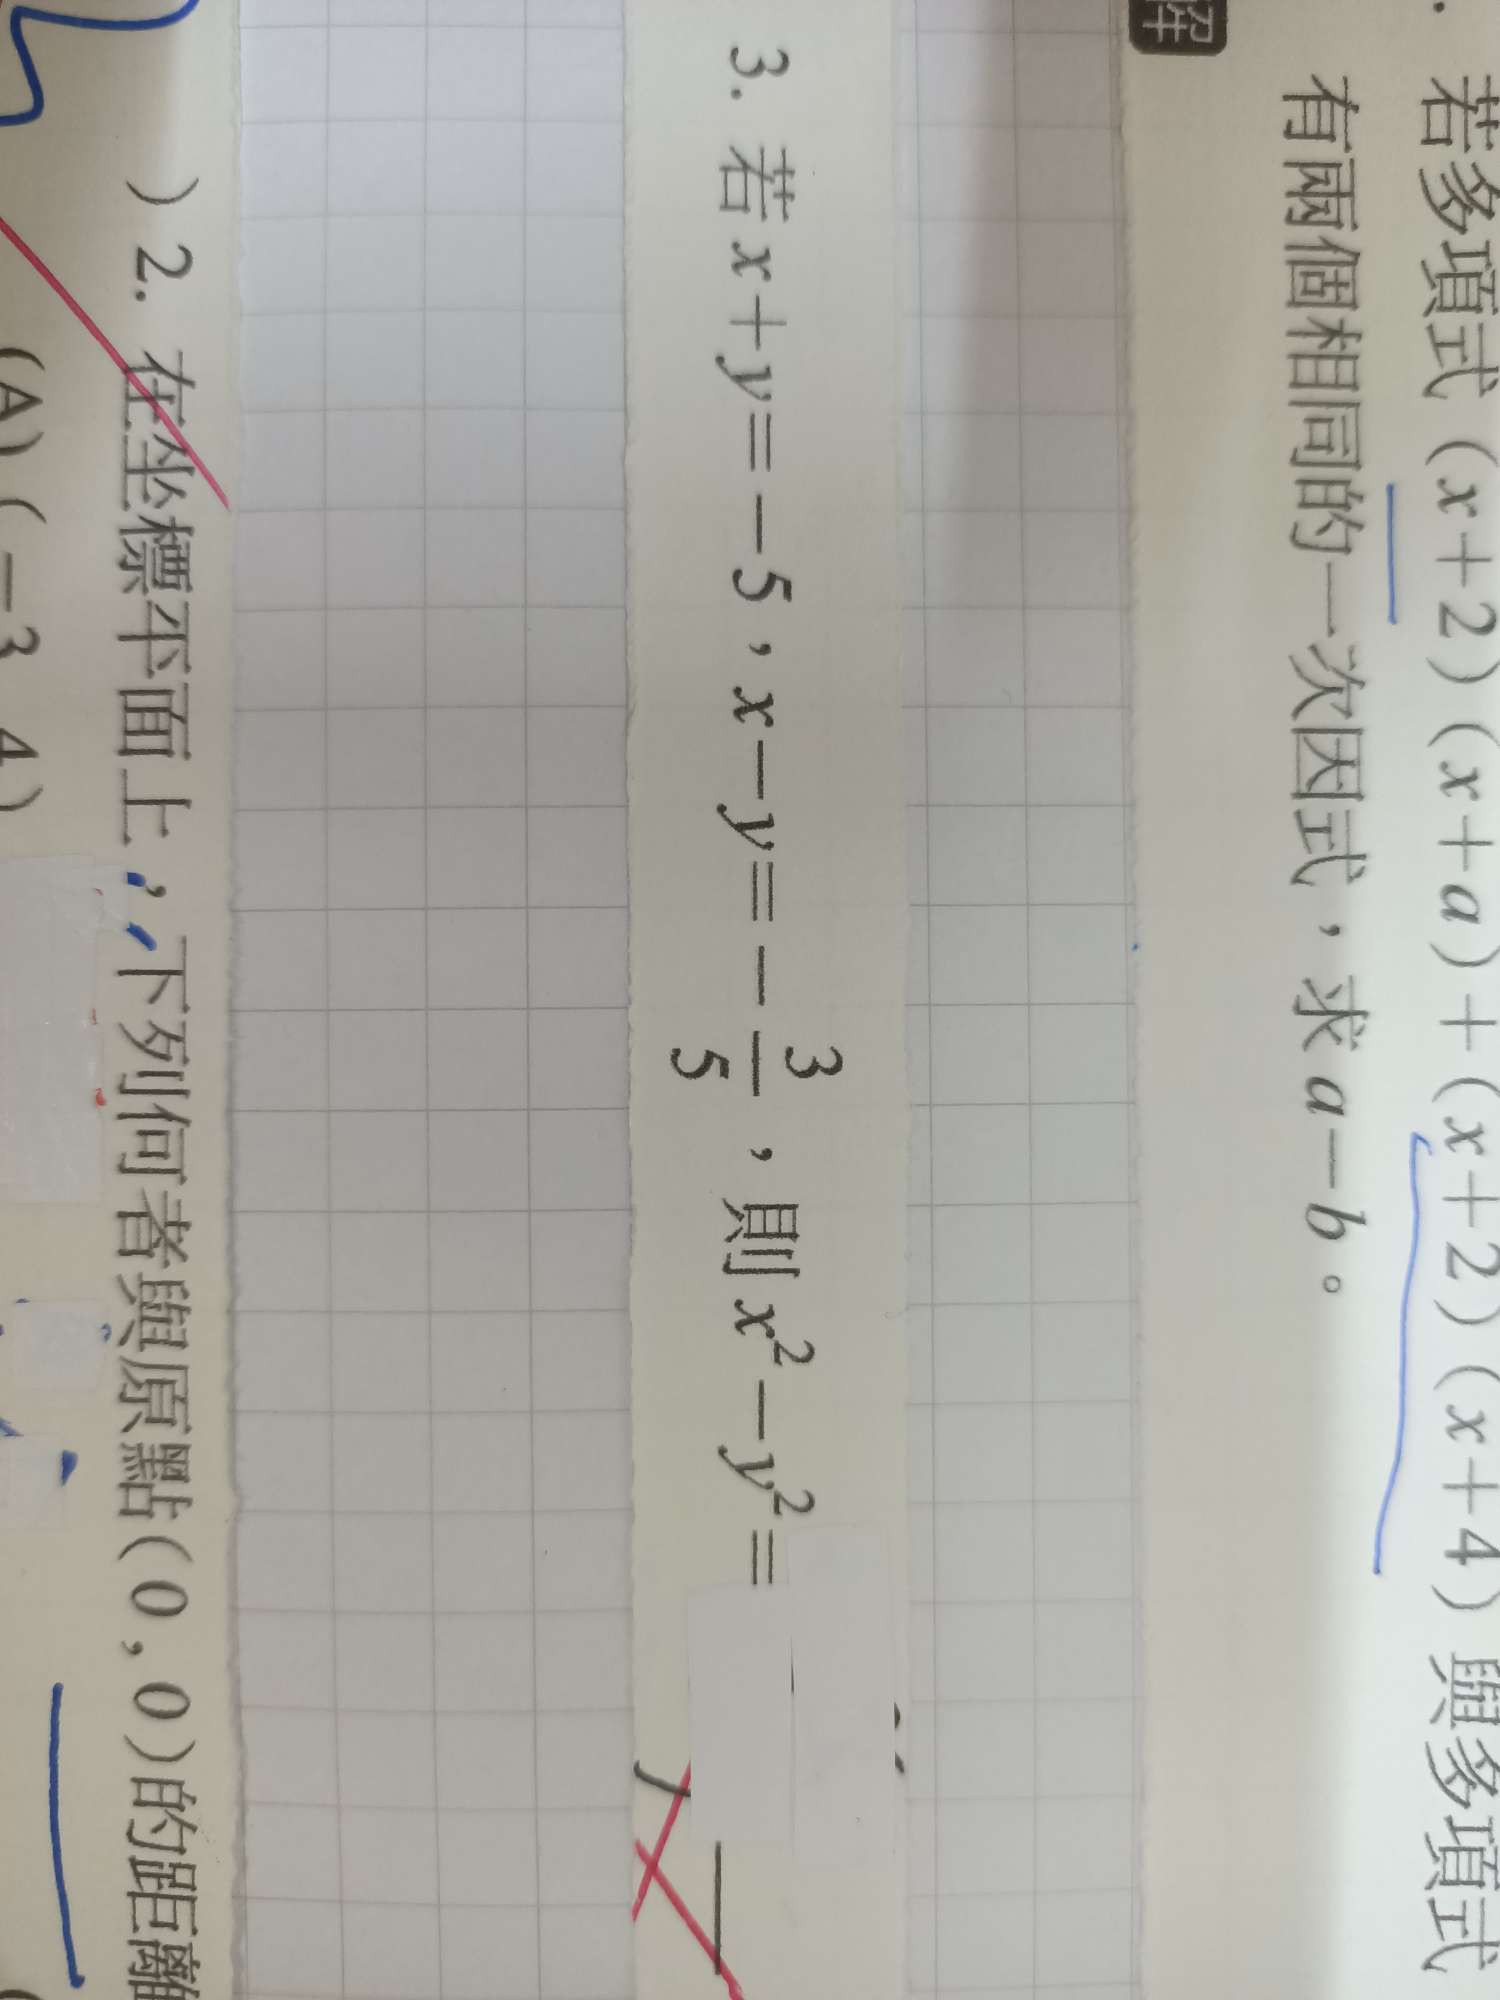 . 若多項式（x＋2）（x＋a）＋（x＋2）（x＋4）與多項式
有兩個相同的一次因式，求 a－b。
解
3. 若 x＋y＝－5，x－y＝－\frac{3}{5}，則 x²－y²＝
）2. 在坐標平面上，下列何者與原點(0,0)的距離
(A)(－3 4)